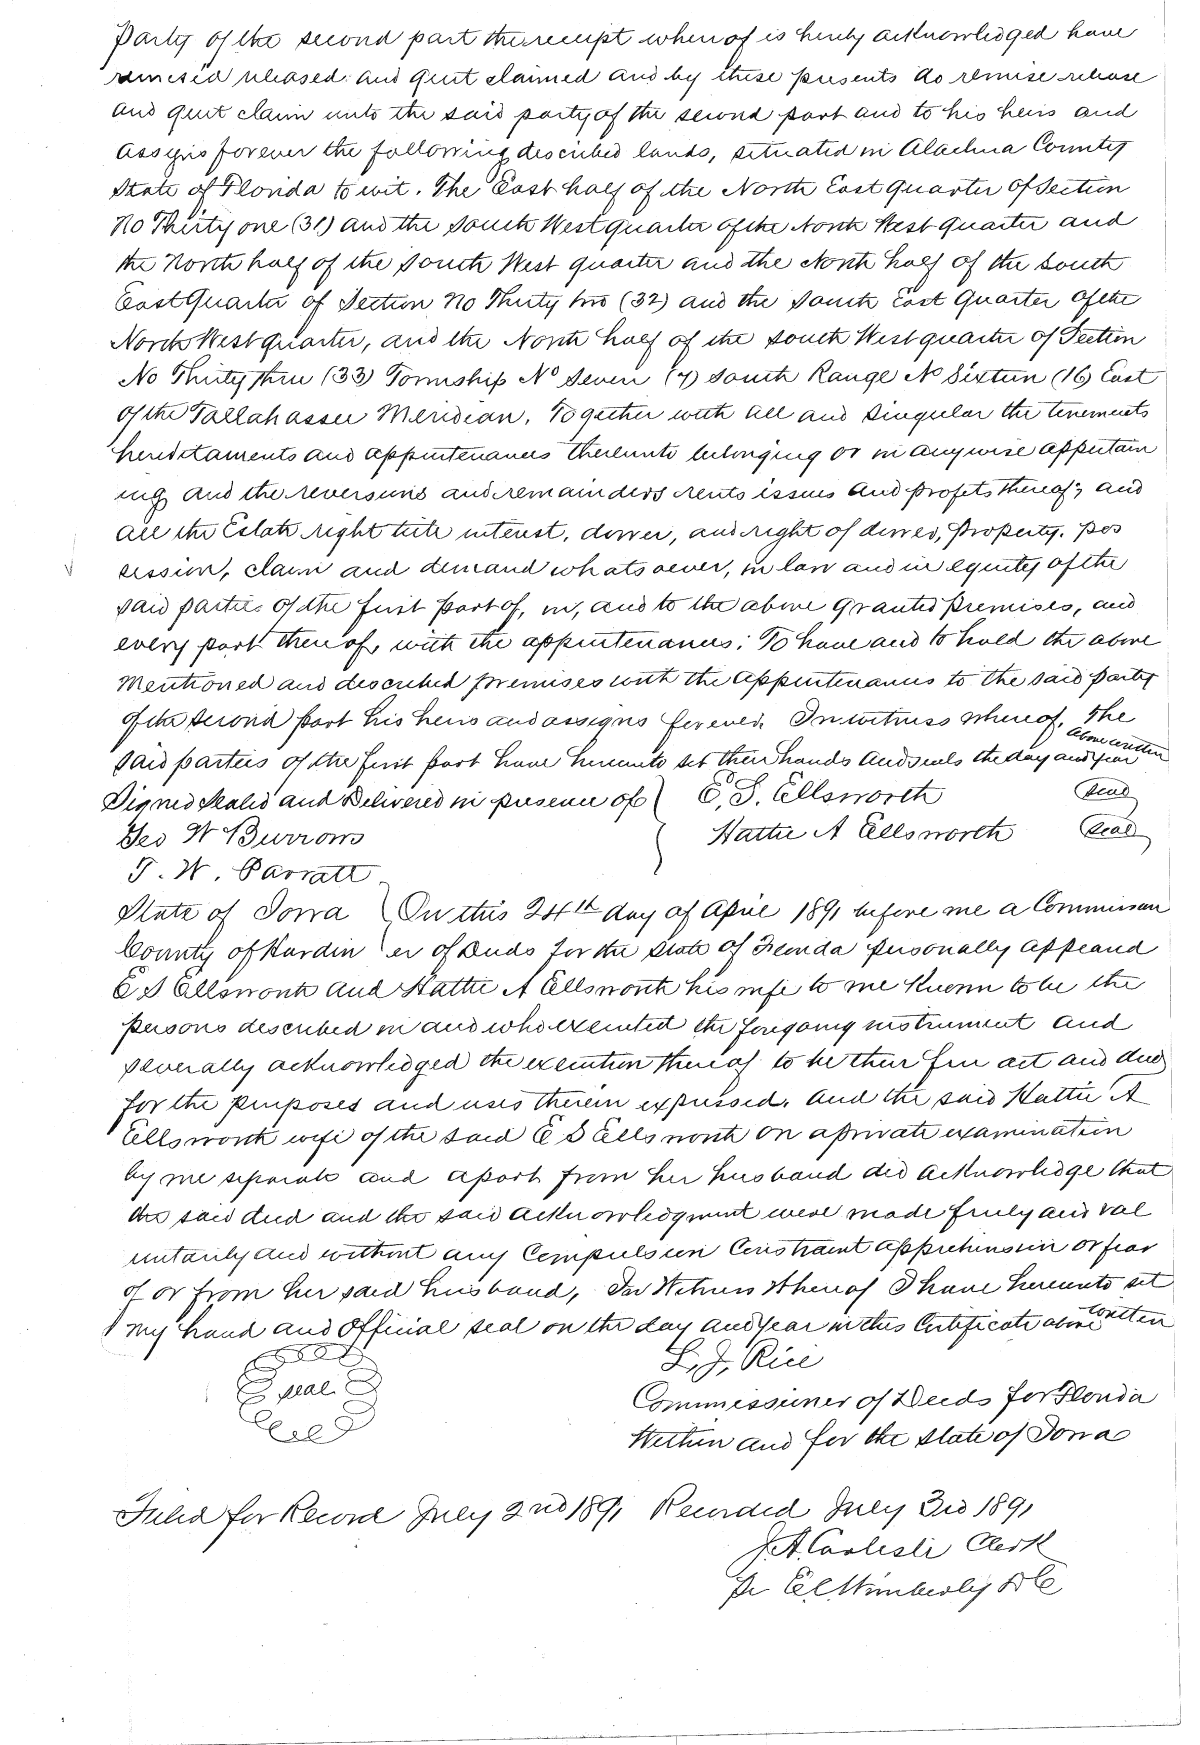 Party of the second part the receipt whereof is hereby acknowledged have
remised released and quit claimed and by these presents do remise release
and quit claim unto the said party of the second part and to his heirs and
assigns forever the following described lands, situated in Alachua County
State of Florida to wit. The East half of the North East quarter of Section
No Thirty one (31) and the South West quarter of the North West quarter and
the North half of the South West quarter and the North half of the South
East Quarter of Section No Thirty two (32) and the South East Quarter of the
North West quarter, and the North half of the South West quarter of Section
No Thirty three (33) Township No Seven (7) South Range No Sixteen (16) East
of the Tallahassee Meridian. Together with all and singular the tenements
hereditaments and appurtenances thereunto belonging or in anywise appertain
ing and the reversions and remainders rents issues and profits thereof; and
all the Estate right title interest, dower, and right of dower, property, pos
session, claim and demand whatsoever, in law and in equity of the
said parties of the first part of, in, and to the above granted premises, and
every part thereof, with the appurtenances: To have and to hold the above
mentioned and described premises with the appurtenances to the said party
of the second part his heirs and assigns forever. In witness whereof, the
said parties of the first part have hereunto set their hands and seals the day and year above written
Signed Sealed and Delivered in presence of } E. S. Ellsworth (Seal)
Geo W Burrows } Hattie A Ellsworth (Seal)
T. W. Parratt
State of Iowa } On this 24th day of April 1891 before me a Commission
County of Hardin } er of Deeds for the State of Florida personally appeared
E S Ellsworth and Hattie A Ellsworth his wife to me known to be the
persons described in and who executed the foregoing instrument and
severally acknowledged the execution thereof to be their free act and deed
for the purposes and uses therein expressed. And the said Hattie A
Ellsworth wife of the said E S Ellsworth on a private examination
by me separate and apart from her husband did acknowledge that
the said deed and the said acknowledgment were made freely and vol
untarily and without any Compulsion Constraint apprehension or fear
of or from her said husband, In Witness Whereof I have hereunto set
my hand and Official seal on the day and year in this Certificate above written
seal L. J. Rice
Commissioner of Deeds for Florida
Within and for the State of Iowa
Filed for Record July 2nd 1891 Recorded July 3rd 1891
J. A. Carlisle Clerk
Pr E C Wimberly D C